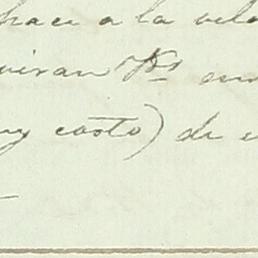 hace a la vela
viran Vds en
uy casto) de